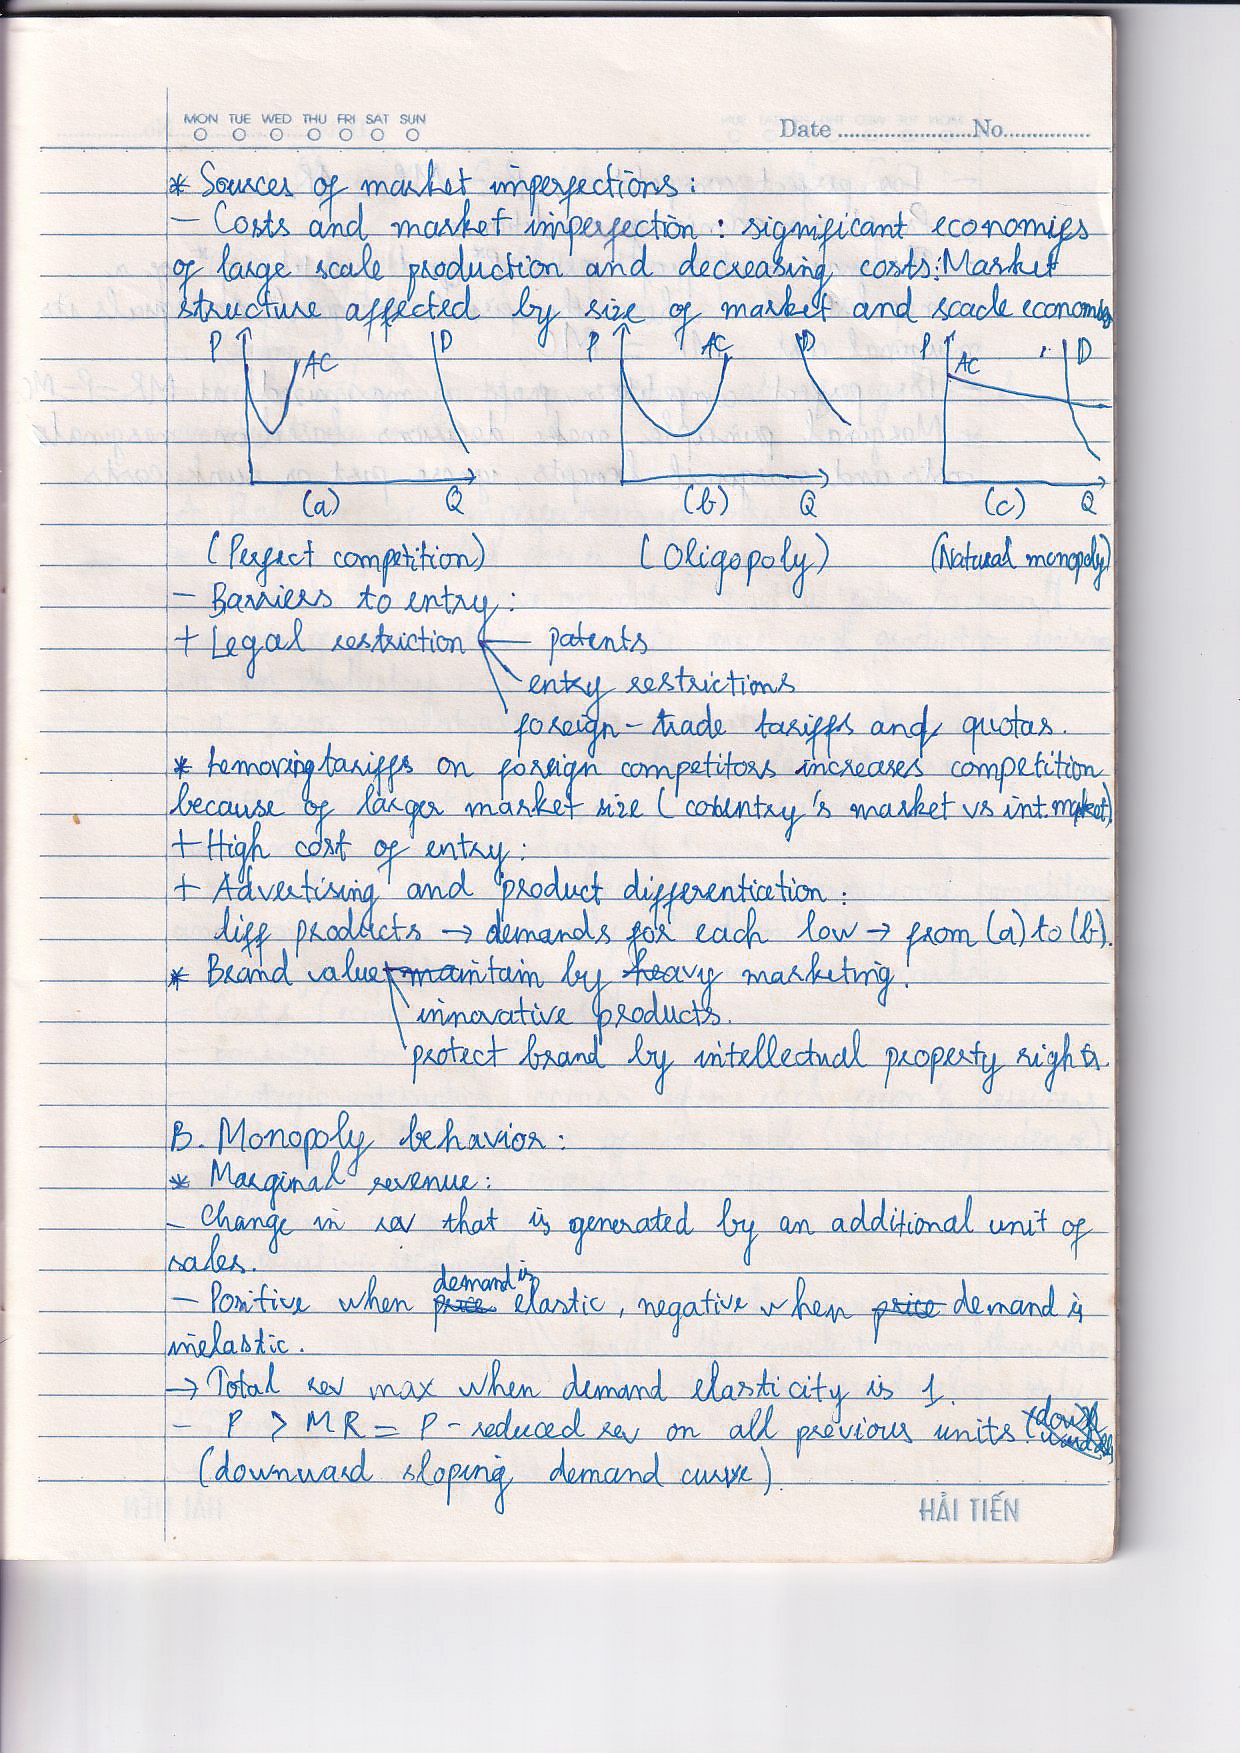 MON TUE WED THU FRI SAT SUN
Date No.
* Sources of market imperfections :
- Costs and market imperfection : significant economies
of large scale production and decreasing costs: Market
structure affected by size of market and scade economies
P AC D P AC D P AC D
(a) Q (b) Q (c) Q
(Perfect competition) (Oligopoly) (Natural monopoly)
- Barriers to entry :
+ Legal restriction — patents
entry restrictions
foreign - trade tariffs and quotas.
* Removing tariffs on foreign competitors increases competition
because of larger market size ( country's market vs int. market).
+ High cost of entry :
+ Advertising and product differentication :
diff products → demands for each low → from (a) to (b).
* Brand value maintain by heavy marketing.
innovative products.
protect brand by intellectual property rights.
B. Monopoly behavior :
* Marginal revenue :
- Change in rev that is generated by an additional unit of
sales.
demand is
- Positive when price elastic, negative when price demand is
inelastic.
→ Total rev max when demand elasticity is 1.
- P > MR = P - reduced rev on all previous units.
(downward sloping demand curve).
HẢI TIẾN